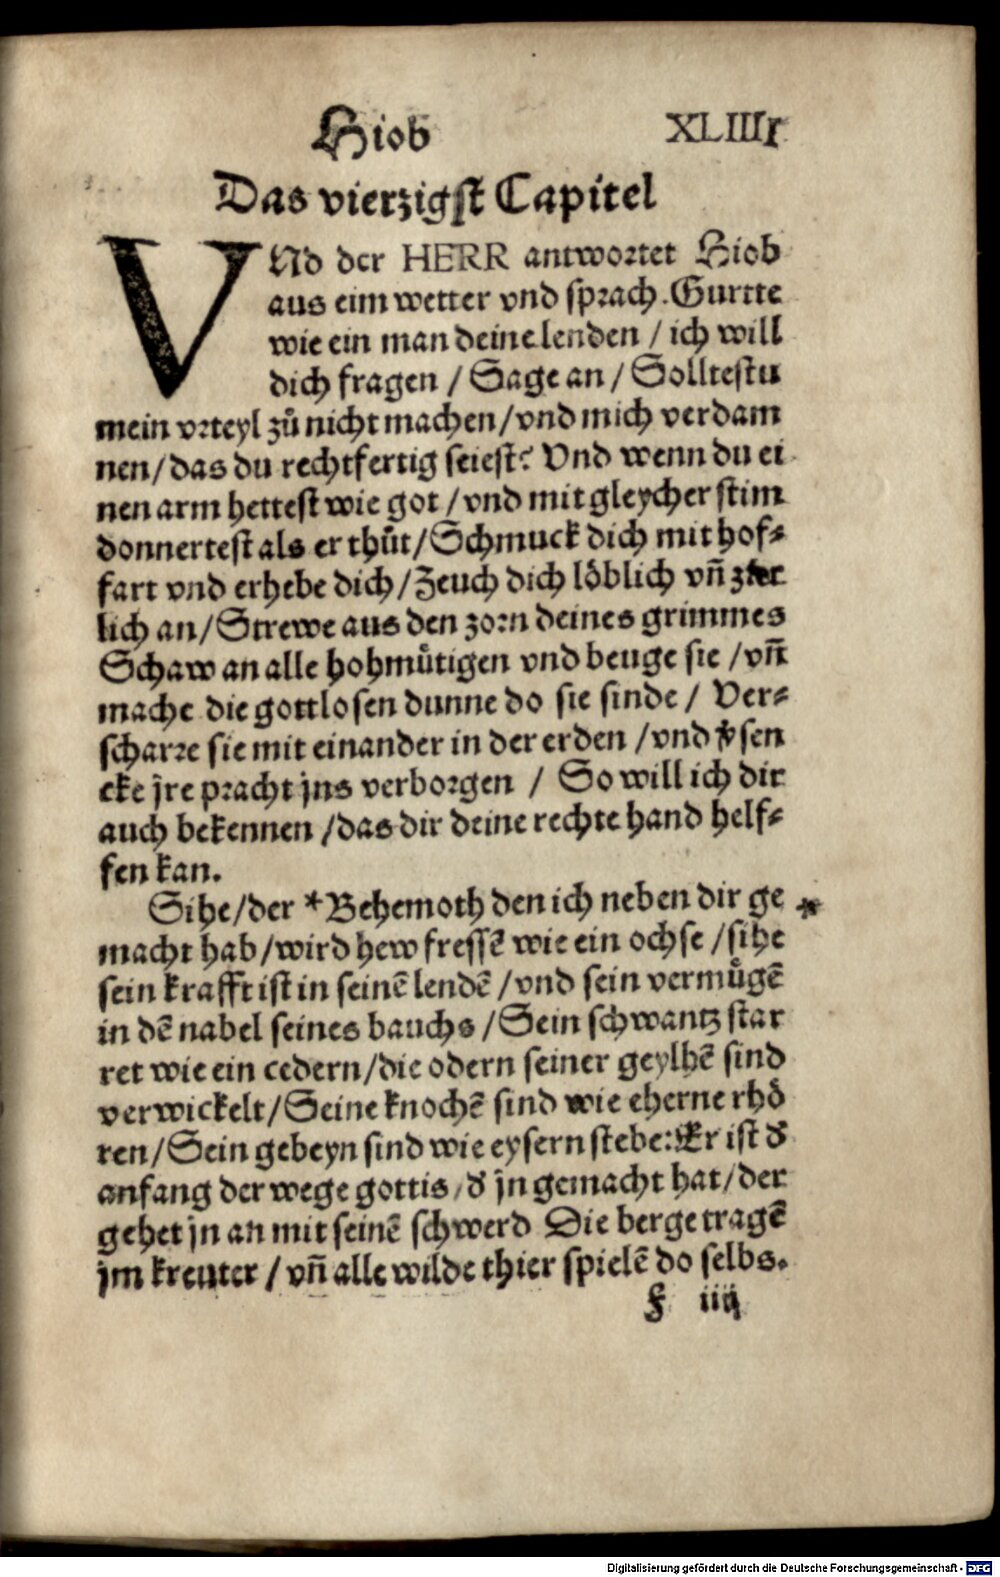 Hiob
XLIIII
Das vierzigst Capitel
VNd der HERR antwortet Hiob
aus eim wetter vnd sprach. Gurtte
wie ein man deine lenden / ich will
dich fragen / Sage an / Solltestu
mein vrteyl zů nicht machen / vnd mich verdam
nen / das du rechtfertig seiest? Vnd wenn du ei
nen arm hettest wie got / vnd mit gleycher stim
donnertest als er thůt / Schmuck dich mit hof⸗
fart vnd erhebe dich / Zeuch dich lőblich vñ zier
lich an / Strewe aus den zorn deines grimmes
Schaw an alle hohmůtigen vnd beuge sie / vñ
mache die gottlosen dunne do sie sinde / Ver⸗
scharre sie mit einander in der erden / vnd ꝟsen
cke jre pracht jns verborgen / So will ich dir
auch bekennen / das dir deine rechte hand helf⸗
fen kan.
Sihe / der *Behemoth den ich neben dir ge *
macht hab / wird hew fressē wie ein ochse / sihe
sein krafft ist in seinē lendē / vnd sein vermůgē
in dē nabel seines bauchs / Sein schwantz star
ret wie ein cedern / die odern seiner geylhē sind
verwickelt / Seine knochē sind wie eherne rhő
ren / Sein gebeyn sind wie eysern stebe: Er ist đ
anfang der wege gottis / đ jn gemacht hat / der
gehet jn an mit seinē schwerd Die berge tragē
jm kreuter / vñ alle wilde thier spielē do selbs.
f iiij
Digitalisierung gefördert durch die Deutsche Forschungsgemeinschaft - DFG